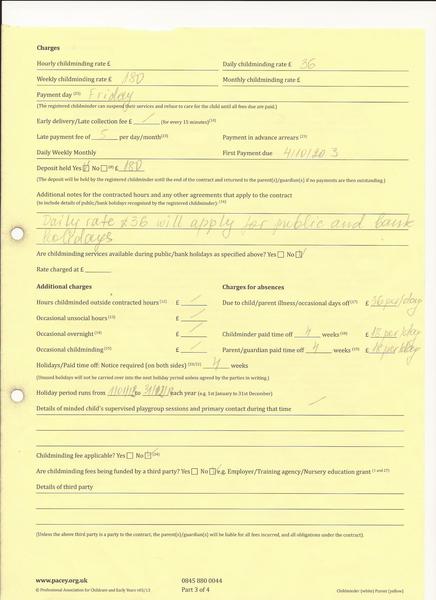 Charges
Hourly childminding rate £ Daily childminding rate £ 36
Weekly childminding rate £ 180 Monthly childminding rate £
Payment day Friday
(The registered childminder can suspend their services and refuse to care for the child until all fees are paid.)
Early delivery/Late collection fee £ / (for every 15 minutes)
Late payment fee of 5 per day/month Payment in advance arrears
Daily Weekly Monthly First Payment due
Deposit held Yes No £ 180
(The deposit will be held by the registered childminder until the end of the contract and returned to the parent(s)/guardian(s) if no payments are then outstanding.)
Additional notes for the contracted hours and any other agreements that apply to the contract
(to include details of public/bank holidays recognised by the registered childminder):
Daily rate £36 will apply for public and bank
holidays
Are childminding services available during public/bank holidays as specified above? Yes No
Rate charged at £
Additional charges Charges for absences
Hours childminded outside contracted hours £ / Due to child/parent illness/occasional days off £ 36 per/day
Occasional unsocial hours £ /
Occasional overnight £ / Childminder paid time off 4 weeks £ 18 per/day
Occasional childminding £ / Parent/guardian paid time off 4 weeks £ 18 per/day
Holidays/Paid time off: Notice required (on both sides) 4 weeks
(Unused holidays will not be carried over into the next holiday period unless agreed by the parties in writing.)
Holiday period runs from to each year (e.g. 1st January to 31st December)
Details of minded child's supervised playgroup sessions and primary contact during that time /
Childminding fee applicable? Yes No
Are childminding fees being funded by a third party? Yes No e.g. Employer/Training agency/Nursery education grant
Details of third party
(Unless the above third party is a party to the contract, the parent(s)/guardian(s) will be liable for all fees incurred, and all obligations under the contract).
www.pacey.org.uk 0845 880 0044
© Professional Association for Childcare and Early Years Part 3 of 4 Childminder (white) Parent (yellow)